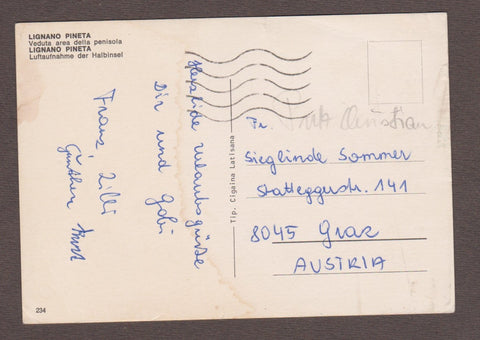 LIGNANO PINETA
Veduta area della penisola
LIGNANO PINETA
Luftaufnahme der Halbinsel
Herzliche Urlaubsgrüße
Dir und Gabi
Franz, Zilli
Günther
Tip. Cigaina Latisana
Fr.
Sieglinde Sommer
Statteggerstr. 141
8045 Graz
AUSTRIA
234